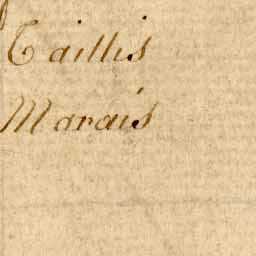 Taillis
Marais